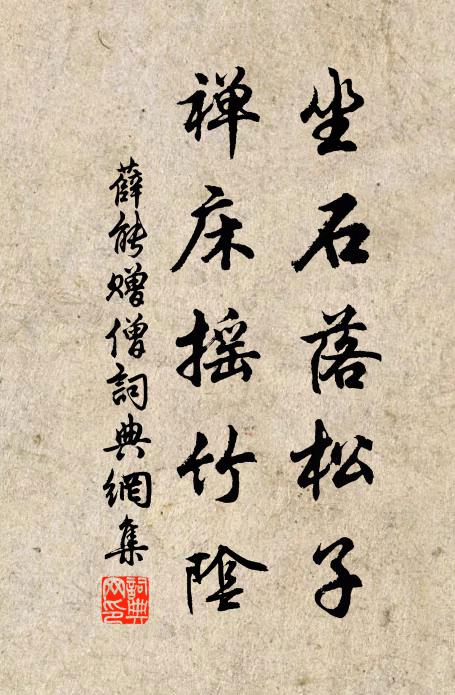 坐石落松子
禅床摇竹陰
薛能赠僧詞典網集
詞典网印